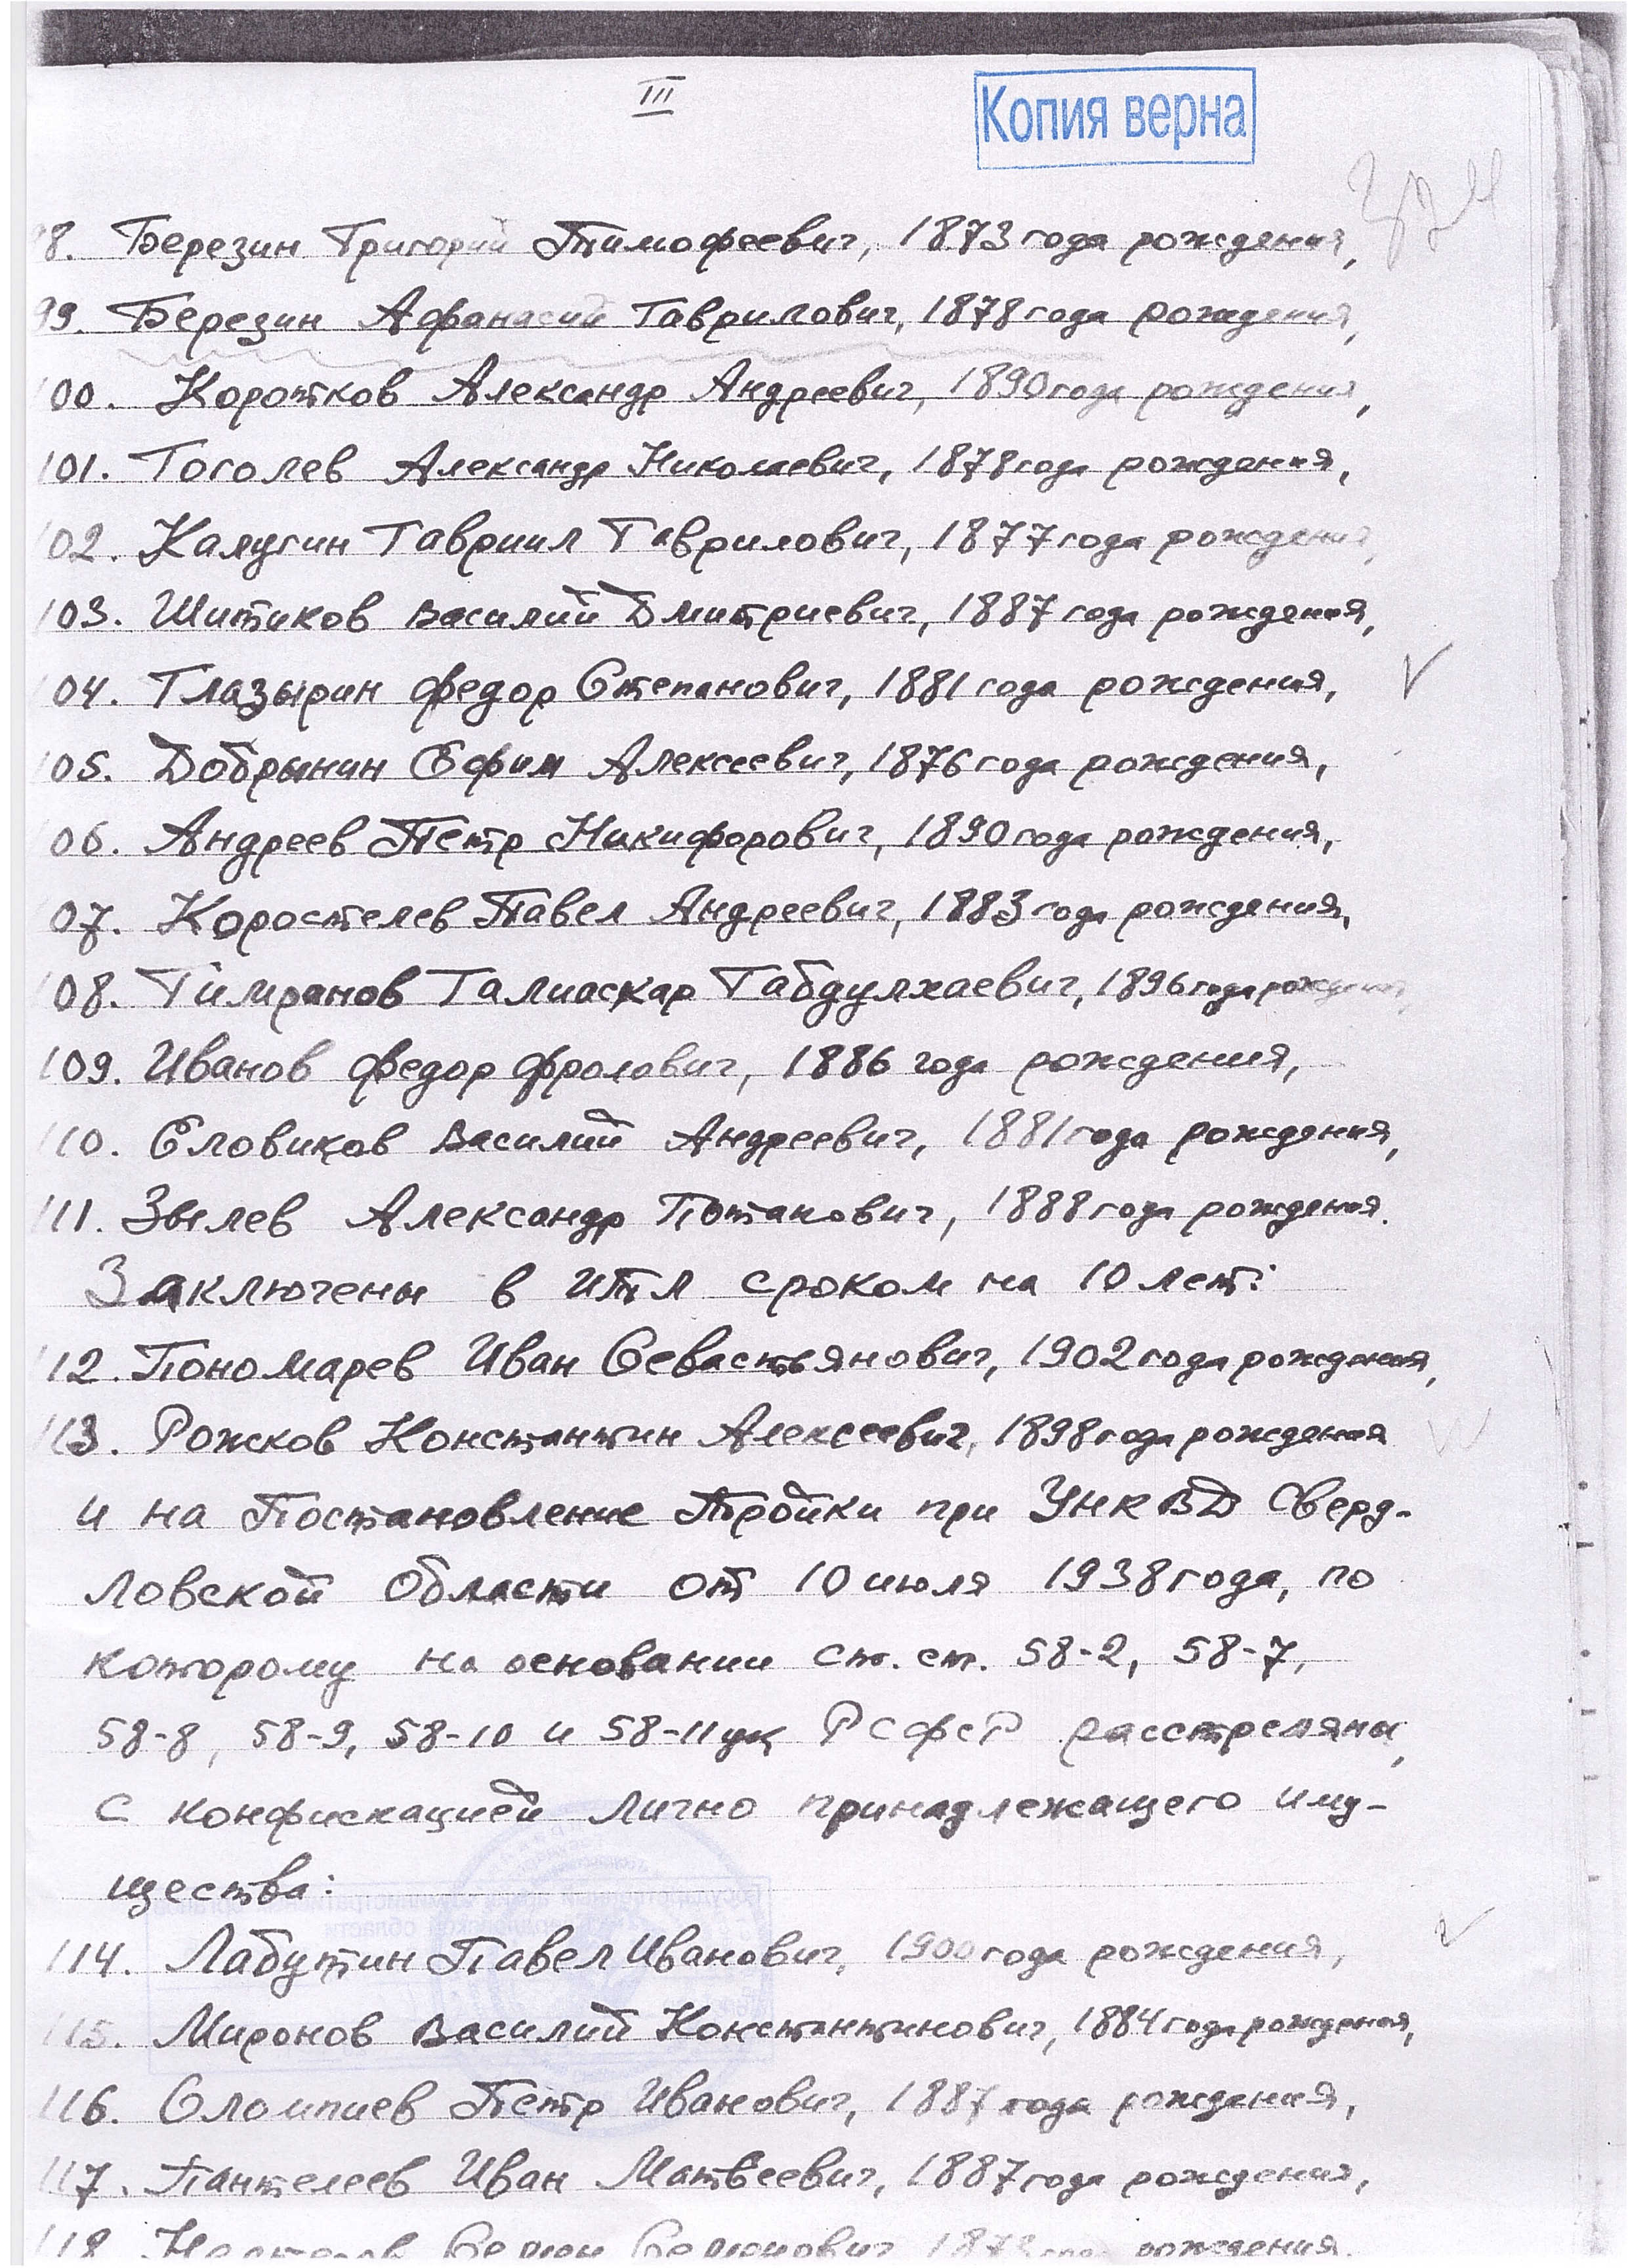 III
Копия верна
98. Березин Григорий Тимофеевич, 1873 года рождения,
99. Березин Афанасий Гаврилович, 1878 года рождения,
100. Коротков Александр Андреевич, 1890 года рождения,
101. Гоголев Александр Николаевич, 1878 года рождения,
102. Калугин Гавриил Гаврилович, 1877 года рождения,
103. Шитиков Василий Дмитриевич, 1887 года рождения,
104. Глазырин Федор Степанович, 1881 года рождения,
105. Добрынин Ефим Алексеевич, 1876 года рождения,
106. Андреев Петр Никифорович, 1890 года рождения,
107. Коростелев Павел Андреевич, 1883 года рождения,
108. Гимранов Галиаскар Габдулхаевич, 1896 года рождения,
109. Иванов Федор Фролович, 1886 года рождения,
110. Еловиков Василий Андреевич, 1881 года рождения,
111. Звылев Александр Потапович, 1888 года рождения.
Заключены в ИТЛ сроком на 10 лет:
112. Пономарев Иван Севастьянович, 1902 года рождения,
113. Рожков Константин Алексеевич, 1898 года рождения
и на Постановление Тройки при УНКВД Сверд-
ловской области от 10 июля 1938 года, по
которому на основании ст. ст. 58-2, 58-7,
58-8, 58-9, 58-10 и 58-11 ук РСФСР расстреляны,
с конфискацией лично принадлежащего иму-
щества:
114. Лабутин Павел Иванович, 1900 года рождения,
115. Миронов Василий Константинович, 1884 года рождения,
116. Олампиев Петр Иванович, 1887 года рождения,
117. Пантелеев Иван Матвеевич, 1887 года рождения,
118. рождения.